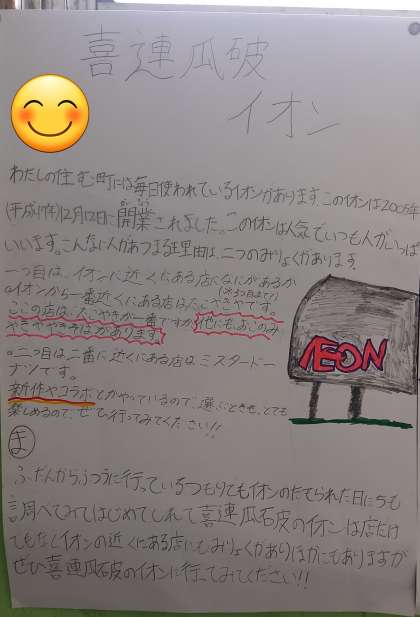 喜連瓜破
イオン
わたしの住む町には毎日使われているイオンがあります。このイオンは2005年
(平成17年)12月12日に開業されました。このイオンは人気でいつも人がいっぱ
いいます。こんなに人があつまる理由は、二つのみりょくがあります。
一つ目は、イオンに近くにある店になにがあるか
(※3つ目まで)
。イオンから一番近くにある店はたこやきやです。
ここの店は、たこやきが一番ですが他にも、おこのみ
やきややきそばがあります。
。二つ目は二番に近くにある店はミスタードー
ナツです。
新作やコラボとかやっているので、選ぶときも、とても
楽しめるので、ぜひ行ってみてください!!
ま
ふだんから、ふつうに行っているつもりでもイオンのたてられた日にちも
調べてみてはじめてしれて喜連瓜破のイオンは店だけ
でもなくイオンの近くにある店にもみりょくがありほかにもありますが
ぜひ喜連瓜破のイオンに行ってみてください!!
ÆON